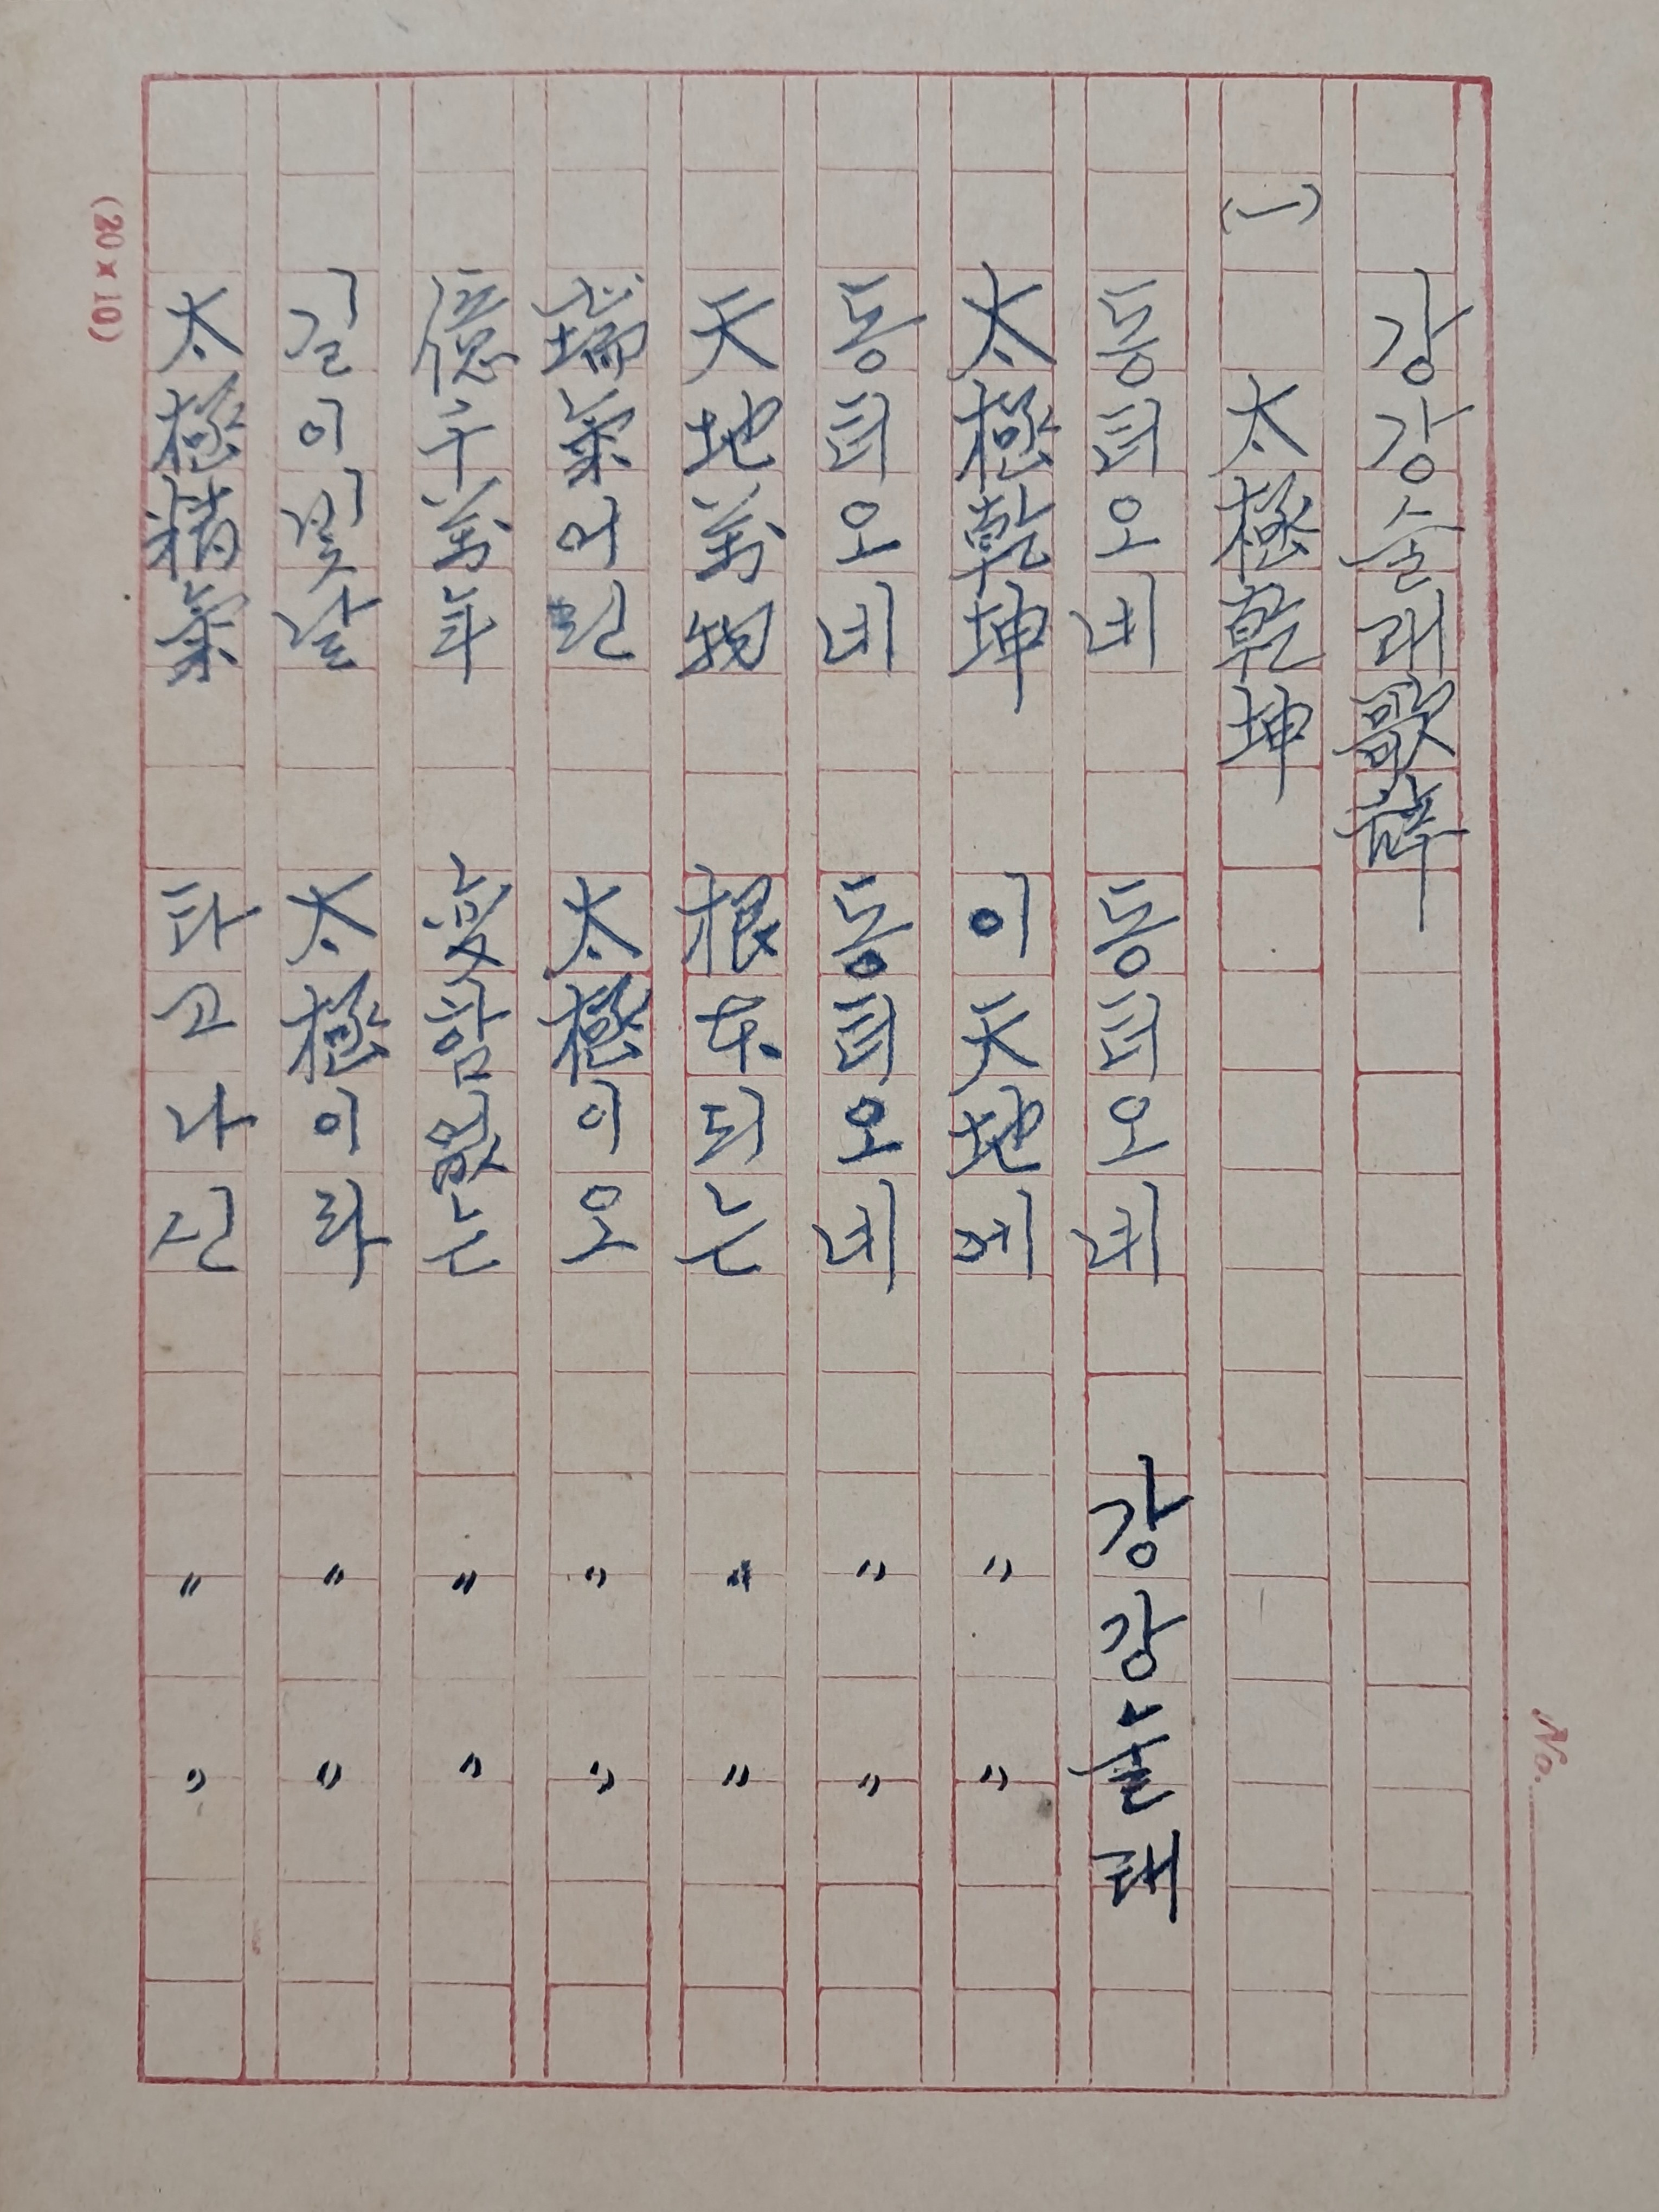 No.
강강술래 歌辞
(一) 太極乾坤
동터오네 동터오네 강강술래
太極乾坤 이天地에 〃 〃
동터오네 동터오네 〃 〃
天地萬物 根本되는 〃 〃
瑞氣어린 太極이오 〃 〃
億千萬年 変함없는 〃 〃
길이빛날 太極이라 〃 〃
太極精氣 타고나긴 〃 〃
(20 x 10)